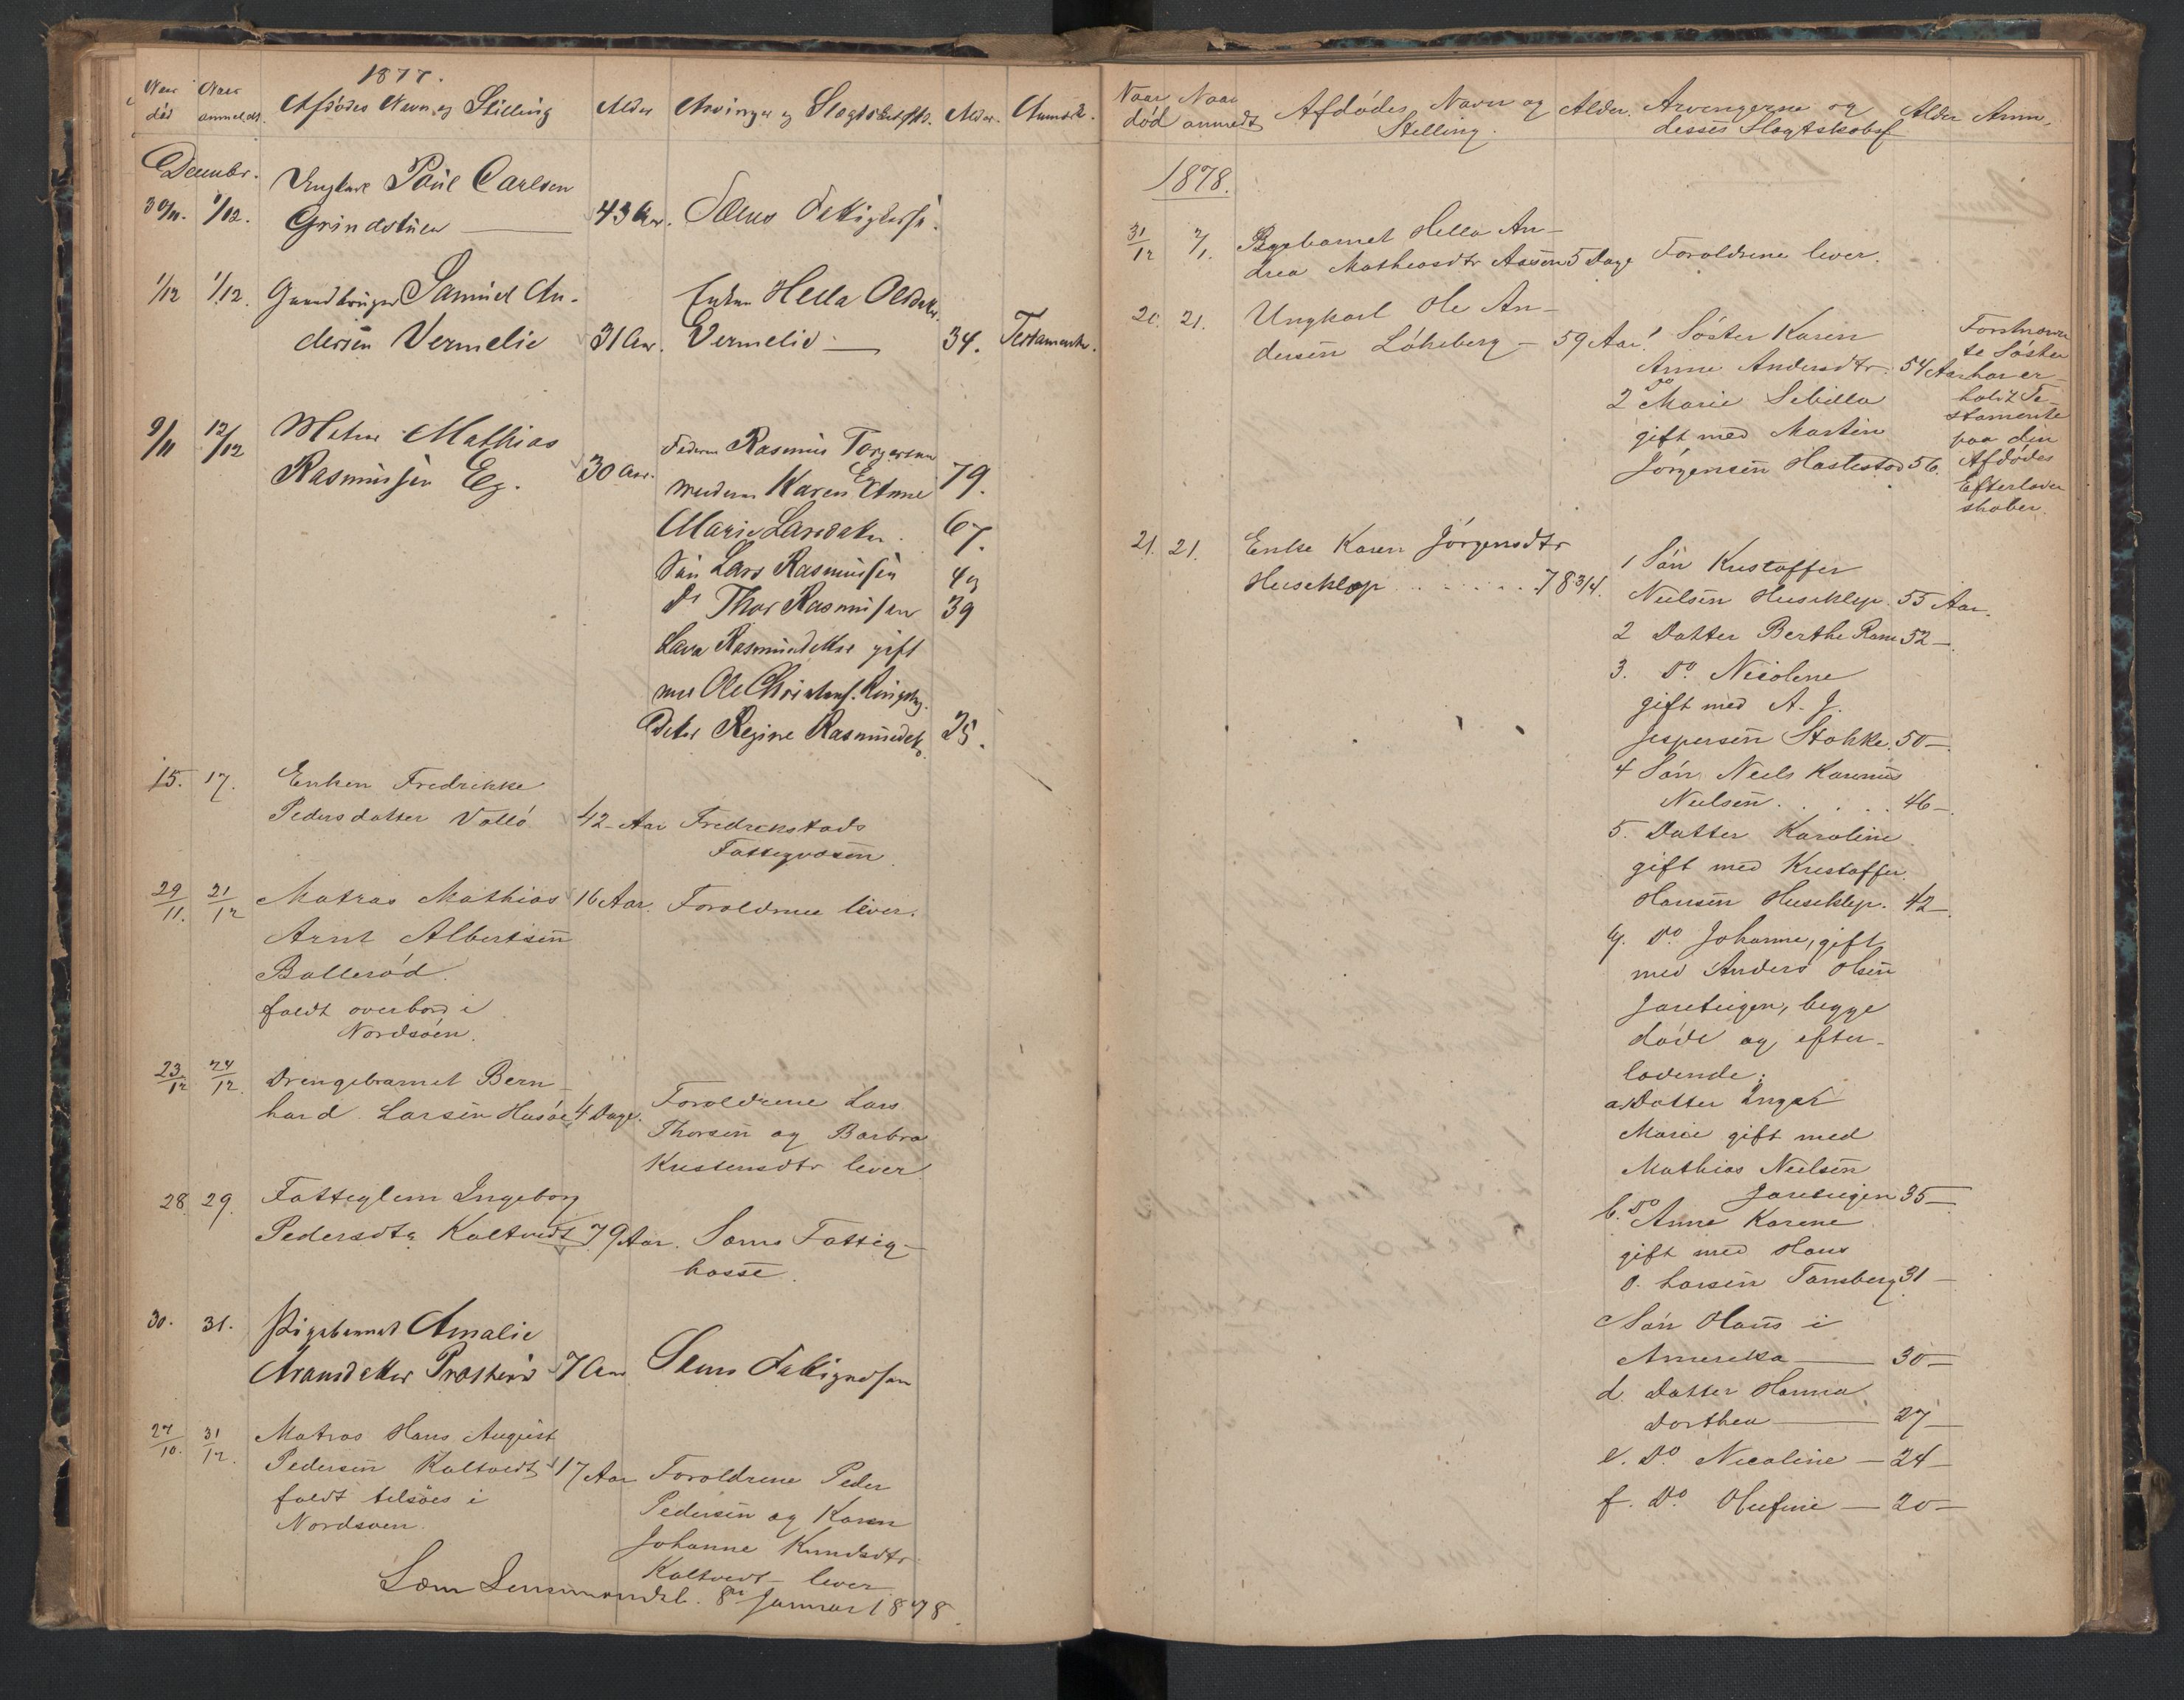 1877.
Naar død
Naar anmeldt
Afdødes Navn og Stilling
Alder
Arvinger og Slægtskabsfh.
Alder.
Anmærk.
Decembr.
30/11. 1/12. Ungkarl Paul Carlsen
Grindstuen — 43 Aar. Sæms Fattigkasse.
1/12 1/12. Gaardbruger Samuel An-
dersen Vermelie 31 Aar. Enken Hella Olsdatr.
Vermelid — 34. Testamente.
9/11 12/12 Mathias
Rasmussen Eg. 30 Aar. Faderen Rasmus Torgersen
Eg 79.
moderen Karen Anne
Marie Larsdatr. 67.
Søn Lars Rasmussen 49
do Thor Rasmussen 39
Rasmusdatter gift
med Ole Christians.
Datter Regine Rasmusdatr. 25.
15. 17. Enken Fredrikke
Pedersdatter Vallø 42 Aar Fredrikstads
Fattigvæsen.
29/11. 21/12 Matros Mathias 16 Aar. Forældrene lever.
Arnt Albertsen
Ballerød.
faldt overbord i
Nordsøen.
23/12 24/12. Drengebarnet Bern-
hard Larsen Husøe 4 Dage. Forældrene Lars
Thorsen og Barbra
Kristensdtr lever.
28. 29. Fattiglem Ingeborg
Pedersdtr Kaltvedt 79 Aar. Sæms Fattig-
kasse.
30. 31. Pigebarnet Amalie
7 Aar Sæms Fattigvæsen
27/10. 31/12. Matros Hans August
Pedersen Kaltvedt 17 Aar Forældrene Peder
faldt tilsøes i
Nordsøen.
Pedersen og Karen
Johanne Knudsdtr.
Kaltvedt lever
Sæm Lensmandsb. 8de Januar 1878.
Naar død
Naar anmeldt
Afdødes Navn og
Stilling.
Alder.
Arvingerne og
desses Slægtskabsf
Alder
Anm.
1878.
31/12 2/1. Pigebarnet Hella An-
drea Mathiasdtr Aasen 5 Dage Forældrene lever.
20. 21. Ungkarl Ole An-
dersen Løkeberg — 59 Aar. 1 Søster Karen
Anne Andersdtr. 54 Aar
2 do Marie Sibilla
gift med Martin
Jørgensen Hastestad 56.
Forstnævn-
te Søster
har er-
holdt Te-
stamente
paa den
Afdødes
Efterladen-
skaber.
21. 21. Enke Karen Jørgensdtr
Huseklep . . . . . . 78 3/4. 1 Søn Kristoffer
Nielsen Huseklep. 55 Aar.
2 Datter Berthe 52 —.
3. do. Nicolene
gift med A. J.
Jespersen Stokke. 50 —.
4 Søn Niels Rasmus
Nielsen . . . . . 46 —.
5. Datter Karoline
gift med Kristoffer
Hansen Huseklep. 42 —.
6. do. Johanne, gift
med Anders Olsen
Jareteigen, begge
døde og efter-
ladende:
a. Datter
Marie gift med
Mathias Nielsen
Jareteigen 35 —
b. do Anne Karene
gift med Hans
O. Larsen Tønsberg 31 —
c Søn Hans i
Amerika — 30 —
d. Datter Hanna
Dorthea — 27 —
e. do. Nicoline — 24 —
f. do. Olufine — 20 —